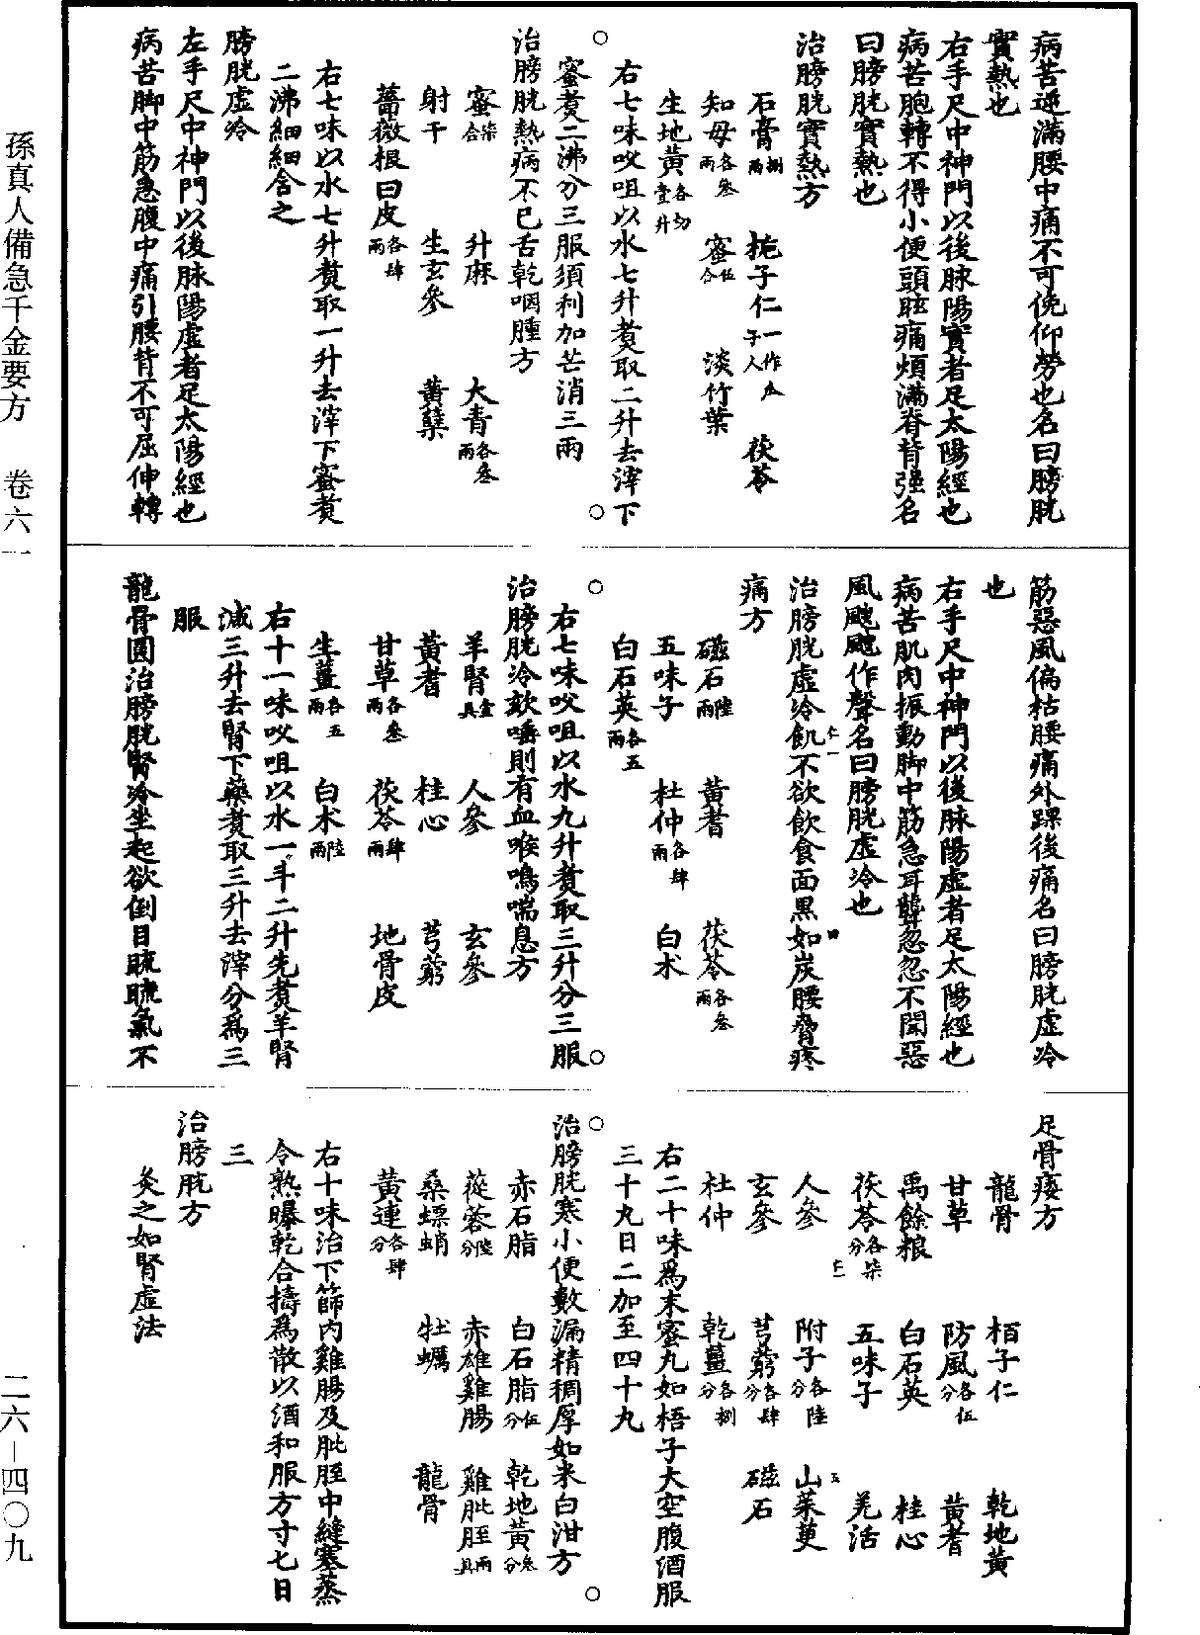 病苦逆滿腰中痛不可俛仰勞也名曰膀胱
實熱也
右手尺中神門以後脉陽實者足太陽經也
病苦胞轉不得小便頭眩痛煩滿脊背强名
曰膀胱實熱也
治膀胱實熱方
石膏捌兩 梔子仁一作瓜子人 茯苓
知母各叁兩 蜜伍合 淡竹葉
生地黄各切壹升
右七味㕮咀以水七升煑取二升去滓下
蜜煑二沸分三服須利加芒消三兩
治膀胱熱病不已舌乾咽腫方
蜜柒合 升麻 大青各叁兩
射干 生玄參 黄蘗
薔薇根白皮各肆兩
右七味以水七升煑取一升去滓下蜜煑
二沸細細含之
膀胱虛冷
左手尺中神門以後脉陽虛者足太陽經也
病苦脚中筋急腹中痛引腰背不可屈伸轉
筋惡風偏枯腰痛外踝後痛名曰膀胱虛冷
也
右手尺中神門以後脉陽虛者足太陽經也
病苦肌肉振動脚中筋急耳聾忽忽不聞惡
風颼颼作聲名曰膀胱虛冷也
治膀胱虛冷飢不欲飲食面黑如炭腰脅疼
痛方
磁石陸兩 黄耆 茯苓各叁兩
五味子 杜仲各肆兩 白术
白石英各五兩
右七味㕮咀以水九升煑取三升分三服
治膀胱冷欬嗽則有血喉鳴喘息方
羊腎壹具 人參 玄參
黄耆 桂心 芎藭
甘草各叁兩 茯苓肆兩 地骨皮
生薑各五兩 白术陸兩
右十一味㕮咀以水一斗二升先煑羊腎
減三升去腎下藥煑取三升去滓分爲三
服
龍骨圓治膀胱腎冷坐起欲倒目䀮䀮氣不
足骨痿方
龍骨 栢子仁 乾地黄
甘草 防風各伍分 黄耆
禹餘粮 白石英 桂心
茯苓各柒分 五味子 羌活
人參 附子各陸分 山茱萸
玄參 芎藭各肆分 磁石
杜仲 乾薑各捌分
右二十味爲末蜜丸如梧子大空腹酒服
三十丸日二加至四十丸
治膀胱寒小便數漏精稠厚如米白泔方
赤石脂 白石脂伍分 乾地黄叁分
蓯蓉陸分 赤雄雞腸 雞肶胵兩具
桑螵蛸 牡蠣 龍骨
黄連各肆分
右十味治下篩内雞腸及肶胵中縫塞蒸
令熟曝乾合擣爲散以酒和服方寸匕日
三
治膀胱方
灸之如腎虛法
孫真人備急千金要方 卷六一
二六—四〇九